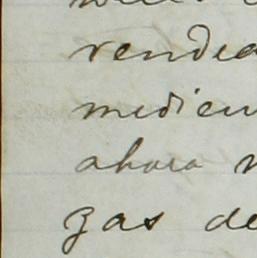 vendea
medien
ahora
zas de